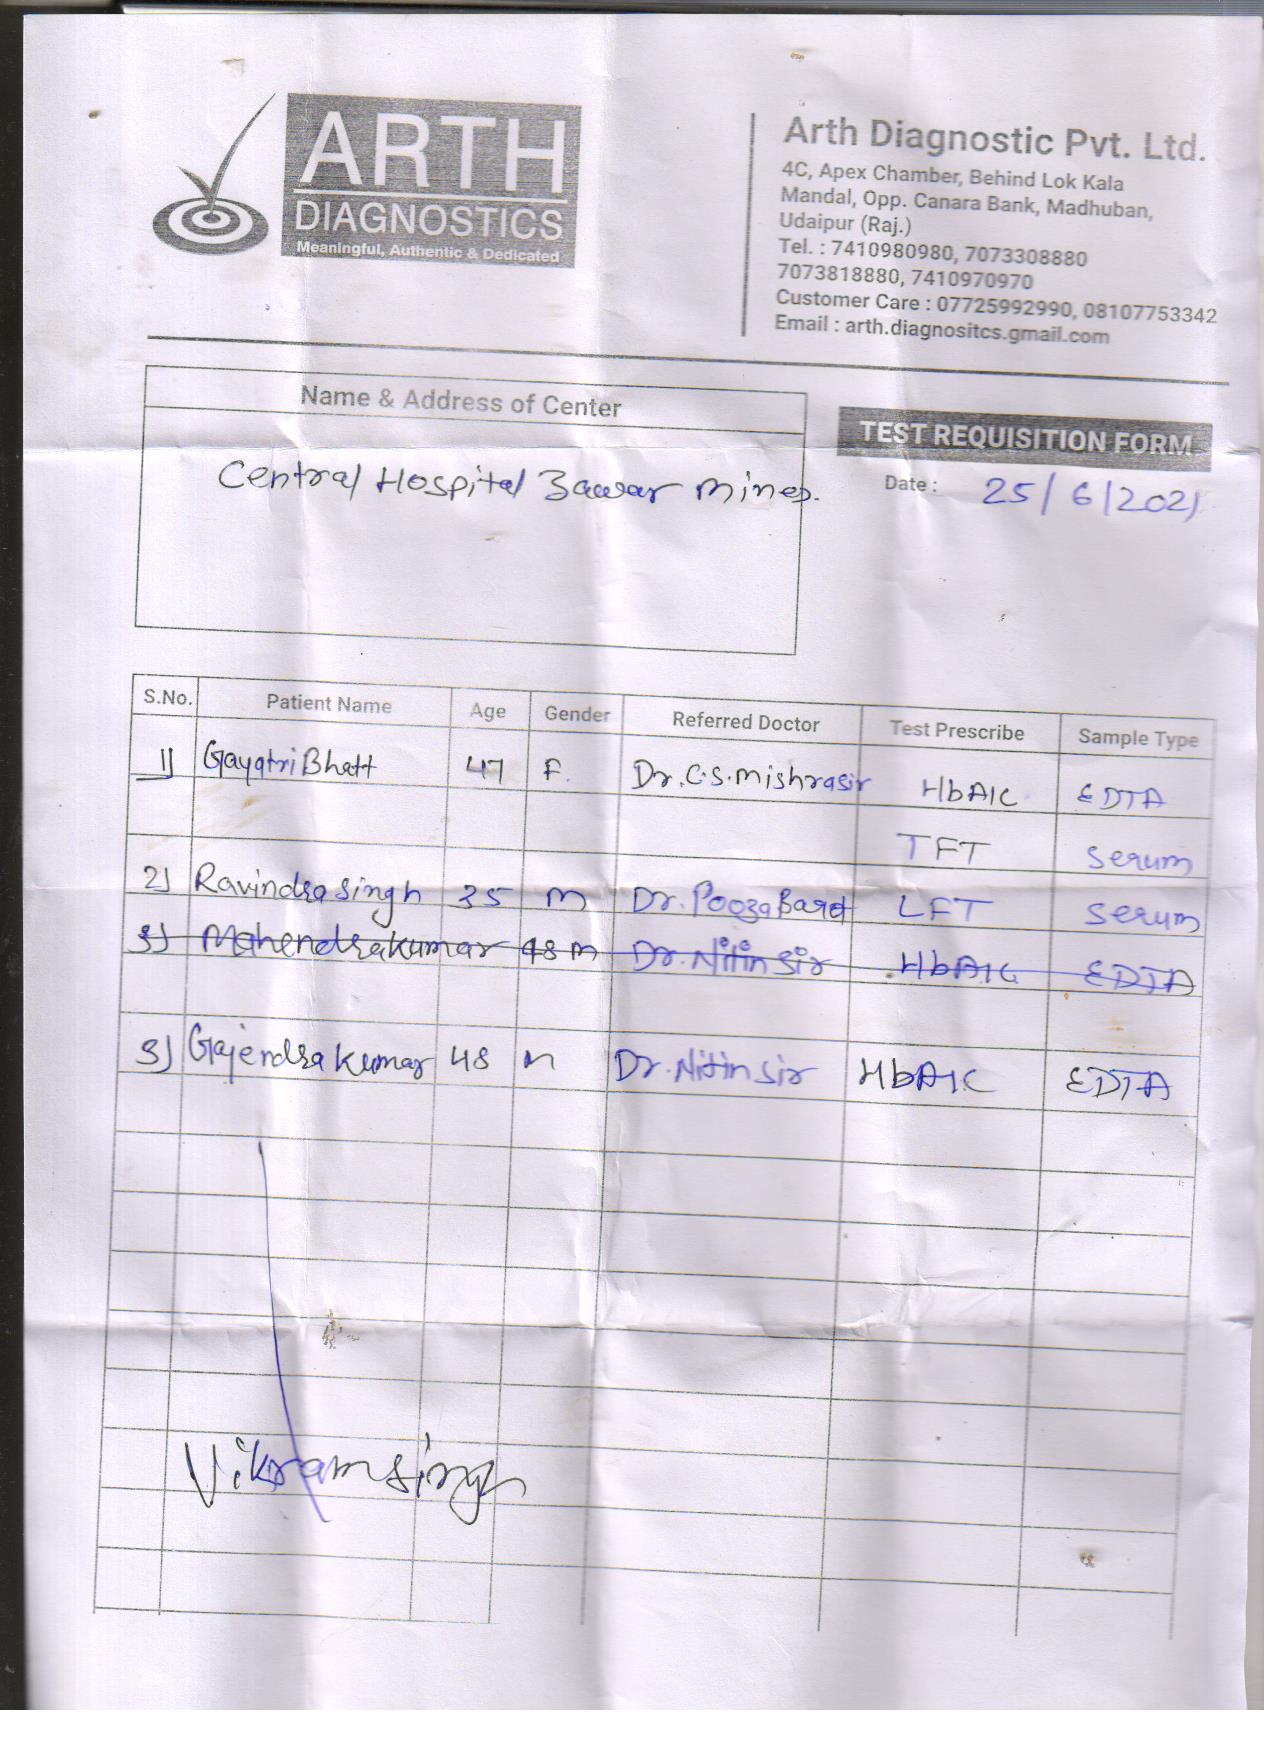 ARTH
DIAGNOSTICS
Meaningful, Authentic & Dedicated
Arth Diagnostic Pvt. Ltd.
4C, Apex Chamber, Behind Lok Kala
Mandal, Opp. Canara Bank, Madhuban,
Udaipur (Raj.)
Tel. : 7410980980, 7073308880
7073818880, 7410970970
Customer Care : 07725992990, 08107753342
Email : arth.diagnositcs.gmail.com
Name & Address of Center
Central Hospital Zawar Mines.
TEST REQUISITION FORM
Date : 25/6/2021
S.No. Patient Name Age Gender Referred Doctor Test Prescribe Sample Type
1) Gayatri Bhatt 47 F. Dr. C.S. Mishra sir HbA1C EDTA
TFT Serum
2) Ravindra Singh 35 M Dr. Pooza LFT Serum
3) Mahendra kumar 48 M Dr. Nitin Sir HbA1C EDTA
3) Gajendra Kumar 48 M Dr. Nitin Sir HbA1C EDTA
Vikram singh